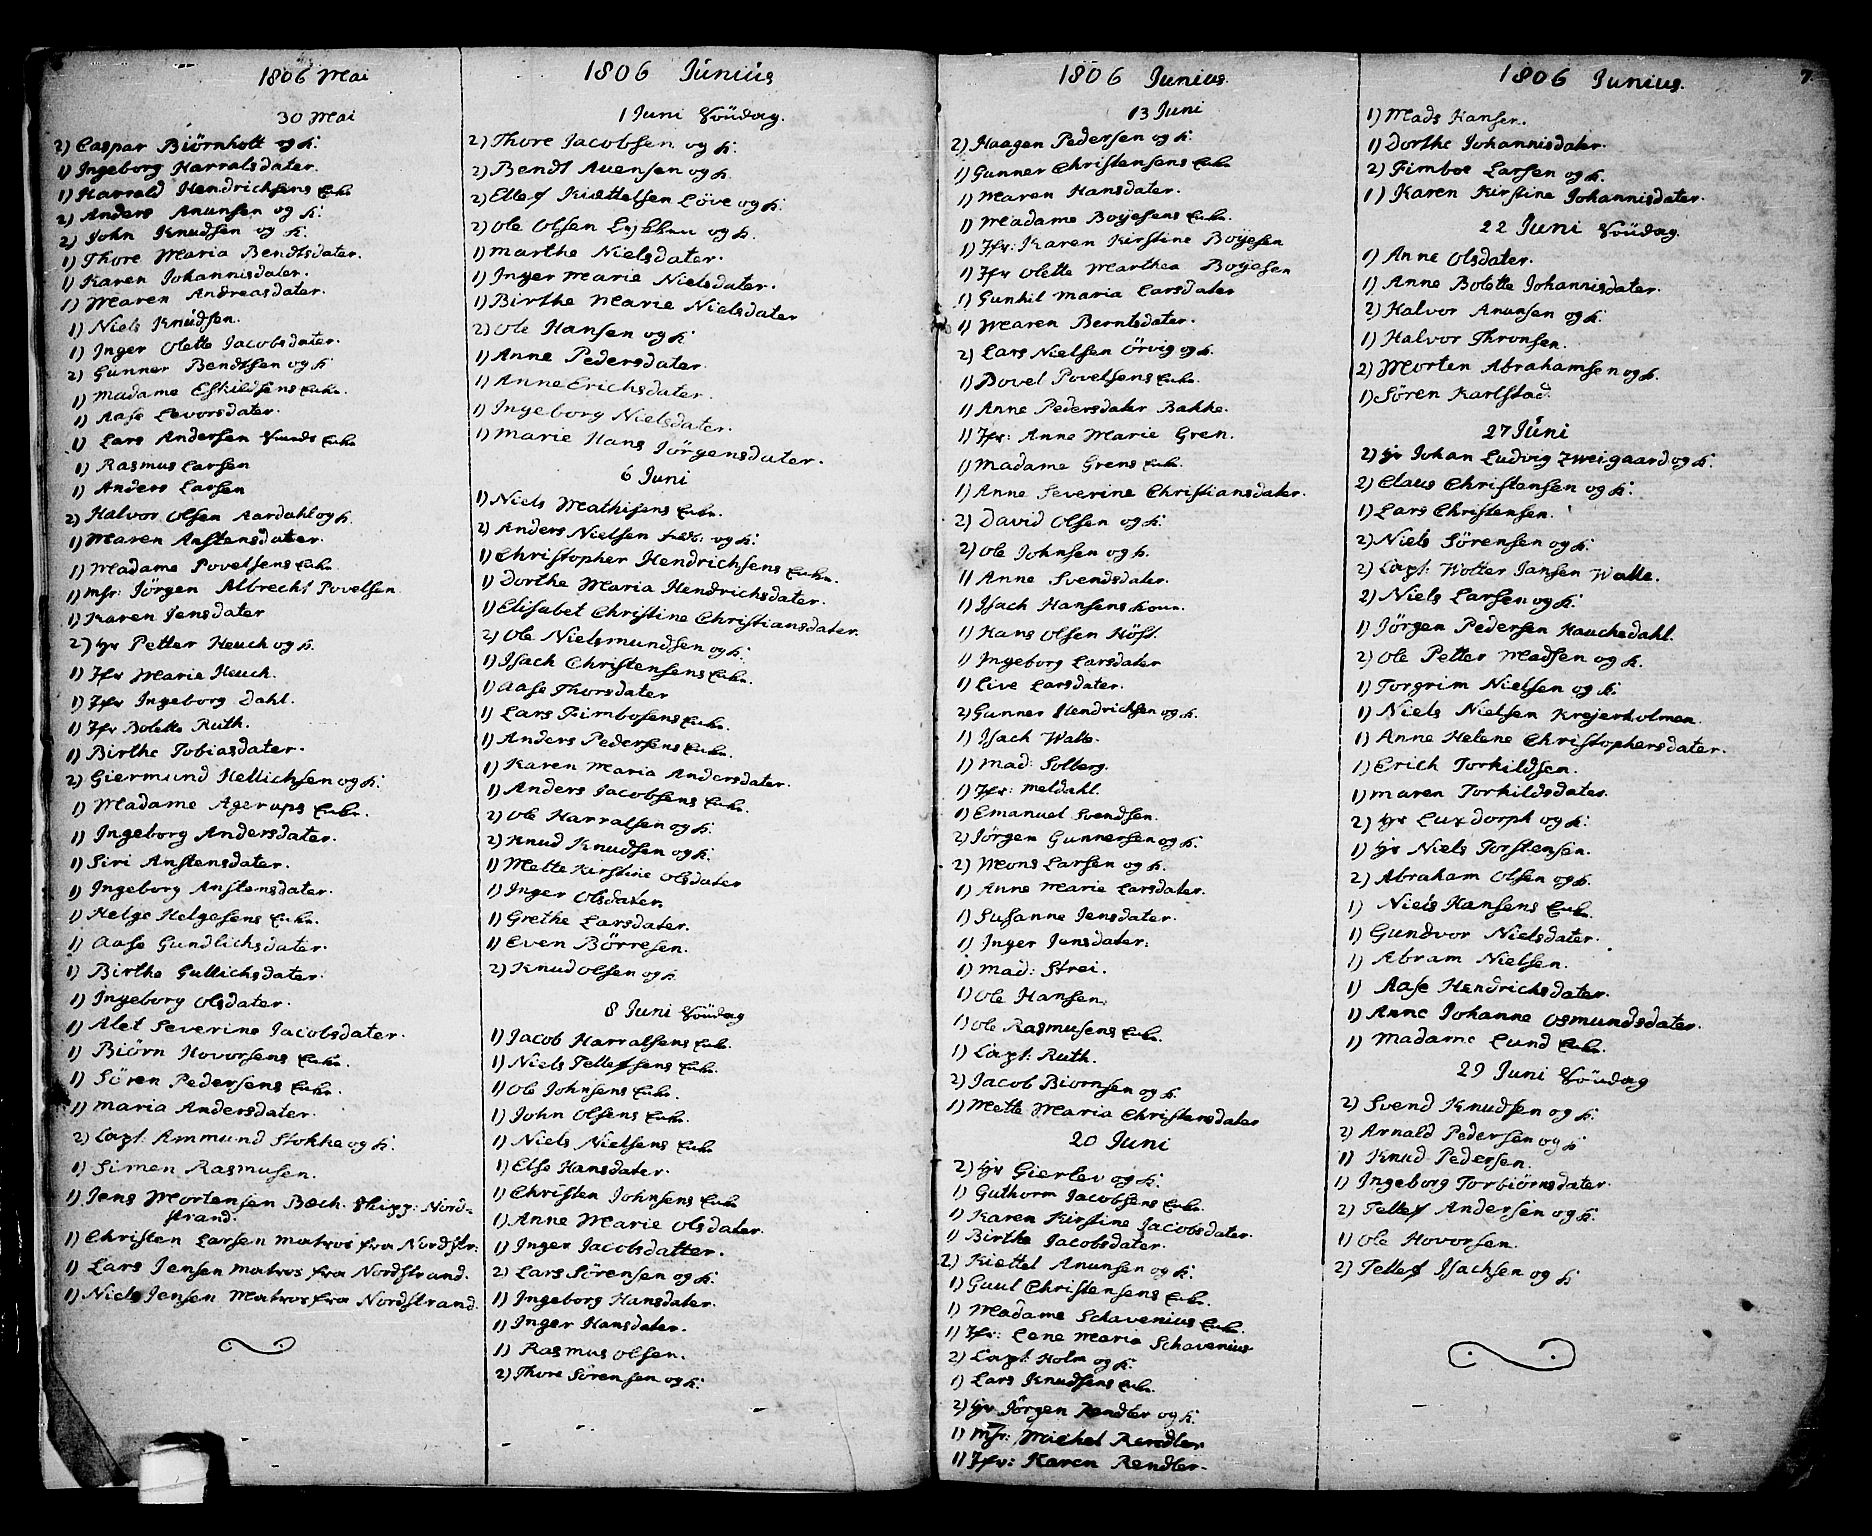 1806 Mai
30 Mai
2) Caspar Biörnholt og k:
1) Ingeborg Harralsdater.
1) Harrald Hendrichsens Enke
2) Anders Anunsen og k:
2) John Knudsen og k:
1) Thore Maria Bendtsdater.
1) Karen Johannisdater.
1) Maren Andreasdater.
1) Niels Knudsen.
1) Inger Olette Jacobsdater.
2) Gunner Bendtsen og k:
1) Madame Eskildsens Enke.
1) Aase Levorsdater.
1) Lars Andersen Sunds Enke
1) Rasmus Larsen
1) Anders Larsen
2) Halvor Olsen Aardahl og k.
1) Maren Anstensdater.
1) Madame Povelsens Enke.
1) Msr: Jörgen Albrecht Povelsen.
1) Karen Jensdater
2) Hr Petter Heuch og k.
1) Jfr Marie Heuch.
1) Jfr Ingeborg Dahl.
1) Jfr Bolette Ruth.
1) Birthe Tobiasdater.
2) Giermund Hellichsen og k:
1) Madame Agerups Enke.
1) Ingeborg Andersdater.
1) Siri Anstensdater.
1) Ingeborg Anstensdater.
1) Helge Helgesens Enke.
1) Aase Gundlichsdater.
1) Birthe Gullichsdater.
1) Ingeborg Olsdater.
1) Alet Severine Jacobsdater.
1) Biörn Hovorsens Enke.
1) Sören Pedersens Enke.
1) Maria Andersdater.
2) Capt. Ammund Stokke og k:
1) Simen Rasmusen.
1) Jens Mortensen Bæch. Skipp: Nord=
strand.
1) Christen Larsen Matros fra Nordstr:
1) Lars Jensen Matros fra Nordstrand.
1) Niels Jensen Matros fra Nordstrand.
1806 Junius
1 Juni Söndag.
2) Thore Jacobsen og k:
2) Bendt Auensen og k.
2) Ellef Kiættelsen Löve og k:
2) Ole Olsen og k.
1) Marthe Nielsdater.
1) Inger Marie Nielsdater.
1) Birthe Marie Nielsdater
2) Ole Hansen og k
1) Anne Pedersdater.
1) Anne Erichsdater.
1) Ingeborg Nielsdater.
1) Marie Hans Jörgensdater.
6 Juni
1) Niels Mathisens Enke.
2) Anders Nielsen og k:
1) Christopher Hendrichsens Enke.
1) Dorthe Maria Hendrichsdater.
1) Elisabet Christine Christiansdater.
2) Ole Nielsmundsen og k:
1) Isach Christensens Enke.
1) Aase Thorsdater
1) Lars Fimbosens Enke.
1) Anders Pedersens Enke.
1) Karen Maria Andersdater.
1) Anders Jacobsens Enke.
2) Ole Harralsen og k:
2) Knud Knudsen og k:
1) Mette Kirstine Olsdater
1) Inger Olsdater.
1) Grethe Larsdater.
1) Even Börresen.
2) Knud Olsen og k
8 Juni Söndag
1) Jacob Harralsens Enke.
1) Niels Tellefsens Enke.
1) Ole Johnsens Enke.
1) John Olsens Enke.
1) Niels Nielsens Enke
1) Else Hansdater.
1) Christen Johnsens Enke
1) Anne Marie Olsdater.
1) Inger Jacobsdatter.
2) Lars Sörensen og k.
1) Ingeborg Hansdater.
1) Inger Hansdater.
1) Rasmus Olsen.
2) Thore Sörensen og k:
1806 Junius.
13 Juni
2) Haagen Pedersen og k:
1) Gunner Christensens Enke
1) Maren Hansdater.
1) Madame Boyesens Enke.
1) Jfr: Karen Kirstine Boyesen
1) Jfr Olette Marthea Boyesen
1) Gunhil Maria Larsdater
1) Maren Berntsdater.
2) Lars Nielsen Örvig og k.
1) Povel Povelsens Enke.
1) Anne Pedersdater Bakke.
1) Jfr: Anne Marie Gren.
1) Madame Grens Enke.
1) Anne Severine Christiansdater.
2) David Olsen og k:
2) Ole Johnsen og k.
1) Anne Svendsdater.
1) Isach Hansens kone.
1) Hans Olsen Höst.
1) Ingeborg Larsdater
1) Live Larsdater.
2) Gunner Hendrichsen og k.
1) Isach Walle.
1) Mad: Solberg.
1) Jfr: Meldahl.
1) Emanuel Svendsen.
2) Jörgen Gunnersen og k:
2) Mons Larsen og k.
1) Anne Marie Larsdater.
1) Susanne Jensdater.
1) Inger Jensdater.
1) Mad: Strei.
1) Ole Hansen.
1) Ole Rasmusens Enke.
1) Capt: Ruth.
2) Jacob Biörnsen og k.
1) Mette Maria Christensdater
20 Juni
2) Hr Gierlev og k:
1) Guthorm Jacobsens Enke.
1) Karen Kirstine Jacobsdater.
1) Birthe Jacobsdater.
2) Kiettel Anunsen og k:
1) Guul Christensens Enke.
1) Madame Schavenius Enke.
1) Jfr: Lene Maria Schavenius
2) Capt. Holm og k:
1) Lars Knudsens Enke.
2) Hr Jörgen Rendler og k:
1) Msr: Michel Rendler
1) Jfr: Karen Rendler.
1806 Junius.
7.
1) Mads Hansen.
1) Dorthe Johannisdater.
2) Fimboe Larsen og k.
1) Karen Kirstine Johannisdater.
22 Juni Söndag.
1) Anne Olsdater.
1) Anne Bolette Johannisdater.
2) Halvor Anunsen og k:
1) Halvor Thronsen.
2) Morten Abrahamsen og k.
1) Sören Karlstad
27 Juni
2) Hr Johan Ludvig Zweigaard og k.
2) Claus Christensen og k:
1) Lars Christensen.
2) Niels Sörensen og k:
2) Capt. Wolter Jansen Walle.
2) Niels Larsen og k:
1) Jörgen Pedersen Hauchedahl.
2) Ole Petter Madsen og k.
1) Torgrim Nielsen og k:
1) Niels Nielsen Krejerholmen
1) Anne Helene Christophersdater.
1) Erich Torkildsen.
1) Maren Torkildsdater.
2) Hr Luxdorph og k:
1) Hr Niels Torstensen.
2) Abraham Olsen og k.
1) Niels Hansens Enke.
1) Gundvor Nielsdater.
1) Abram Nielsen.
1) Aase Hendrichsdater.
1) Anne Johanne Osmundsdater.
1) Madame Lund Enke.
29 Juni Söndag
2) Svend Knudsen og k:
2) Arnald Pedersen og k
1) Knud Pedersen.
1) Ingeborg Torbiörnsdater.
2) Tellef Andersen og k:
1) Ole Hovorsen.
2) Tellef Isachsen og k